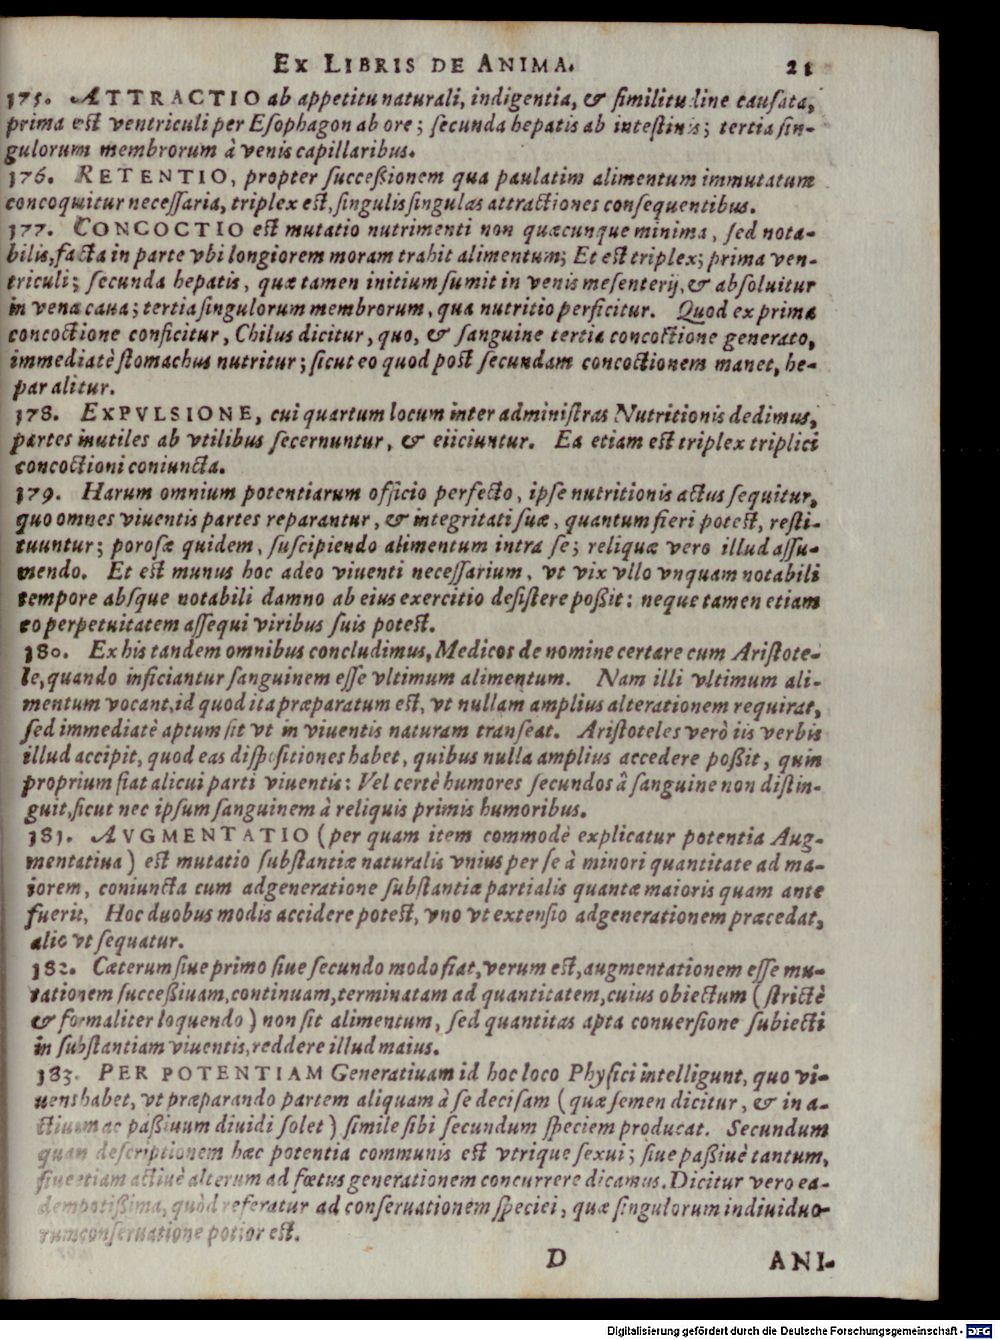 EX LIBRIS DE ANIMA. 21
175. ATTRACTIO ab appetitu naturali, indigentia, & ſimilitudine cauſata,
prima est ventriculi per Eſophagon ab ore; ſecunda hepatis ab inteſtinis; tertia ſin-
gulorum membrorum à venis capillaribus.
176. RETENTIO, propter ſucceßionem qua paulatim alimentum immutatum
concoquitur neceſſaria, triplex est, ſingulis ſingulas attractiones conſequentibus.
177. CONCOCTIO est mutatio nutrimenti non quæcunque minima, ſed nota-
bilis, facta in parte vbi longiorem moram trahit alimentum; Et est triplex; prima ven-
triculi; ſecunda hepatis, quæ tamen initium ſumit in venis meſenterij, & abſoluitur
in vena caua; tertia ſingulorum membrorum, qua nutritio perficitur. Quod ex prima
concoctione conficitur, Chilus dicitur, quo, & ſanguine tertia concoctione generato,
immediatè ſtomachus nutritur; ſicut eo quod post ſecundam concoctionem manet, he-
par alitur.
178. EXPVLSIONE, cui quartum locum inter adminiſtras Nutritionis dedimus,
partes inutiles ab vtilibus ſecernuntur, & eiiciuntur. Ea etiam est triplex triplici
concoctioni coniuncta.
179. Harum omnium potentiarum officio perfecto, ipſe nutritionis actus ſequitur,
quo omnes viuentis partes reparantur, & integritati ſuæ, quantum fieri potest, reſti-
tuuntur; poroſæ quidem, ſuſcipiendo alimentum intra ſe; reliquæ vero illud aſſu-
mendo. Et est munus hoc adeo viuenti neceſſarium, vt vix vllo vnquam notabili
tempore abſque notabili damno ab eius exercitio deſiſtere poßit: neque tamen etiam
eo perpetuitatem aſſequi viribus ſuis potest.
180. Ex his tandem omnibus concludimus, Medicos de nomine certare cum Ariſtote-
le, quando inficiantur ſanguinem eſſe vltimum alimentum. Nam illi vltimum ali-
mentum vocant, id quod ita præparatum est, vt nullam amplius alterationem requirat,
ſed immediatè aptum ſit vt in viuentis naturam tranſeat. Ariſtoteles verò iis verbis
illud accipit, quod eas diſpoſitiones habet, quibus nulla amplius accedere poßit, quin
proprium fiat alicui parti viuentis: Vel certè humores ſecundos â ſanguine non diſtin-
guit, ſicut nec ipſum ſanguinem à reliquis primis humoribus.
181. AVGMENTATIO (per quam item commodè explicatur potentia Aug-
mentatiua) est mutatio ſubſtantiæ naturalis vnius per ſe à minori quantitate ad ma-
iorem, coniuncta cum adgeneratione ſubſtantiæ partialis quantæ maioris quam ante
fuerit, Hoc duobus modis accidere potest, vno vt extenſio adgenerationem præcedat,
alio vt ſequatur.
182. Cæterum ſiue primo ſiue ſecundo modo fiat, verum est, augmentationem eſſe mu-
tationem ſucceßiuam, continuam, terminatam ad quantitatem, cuius obiectum (ſtrictè
& formaliter loquendo) non ſit alimentum, ſed quantitas apta conuerſione ſubiecti
in ſubſtantiam viuentis, reddere illud maius.
183. PER POTENTIAM Generatiuam id hoc loco Phyſici intelligunt, quo vi-
uens habet, vt præparando partem aliquam à ſe deciſam (quæ ſemen dicitur, & in a-
ctiuum ac paßiuum diuidi ſolet) ſimile ſibi ſecundum ſpeciem producat. Secundum
quam deſcriptionem hæc potentia communis est vtrique ſexui; ſiue paßiuè tantum,
ſiue etiam actiuè alterum ad fœtus generationem concurrere dicamus. Dicitur vero ea-
dem potißima, quòd referatur ad conſeruationem ſpeciei, quæ ſingulorum indiuiduo-
rum conſeruatione potior est.
D ANI-
Digitalisierung gefördert durch die Deutsche Forschungsgemeinschaft - DFG